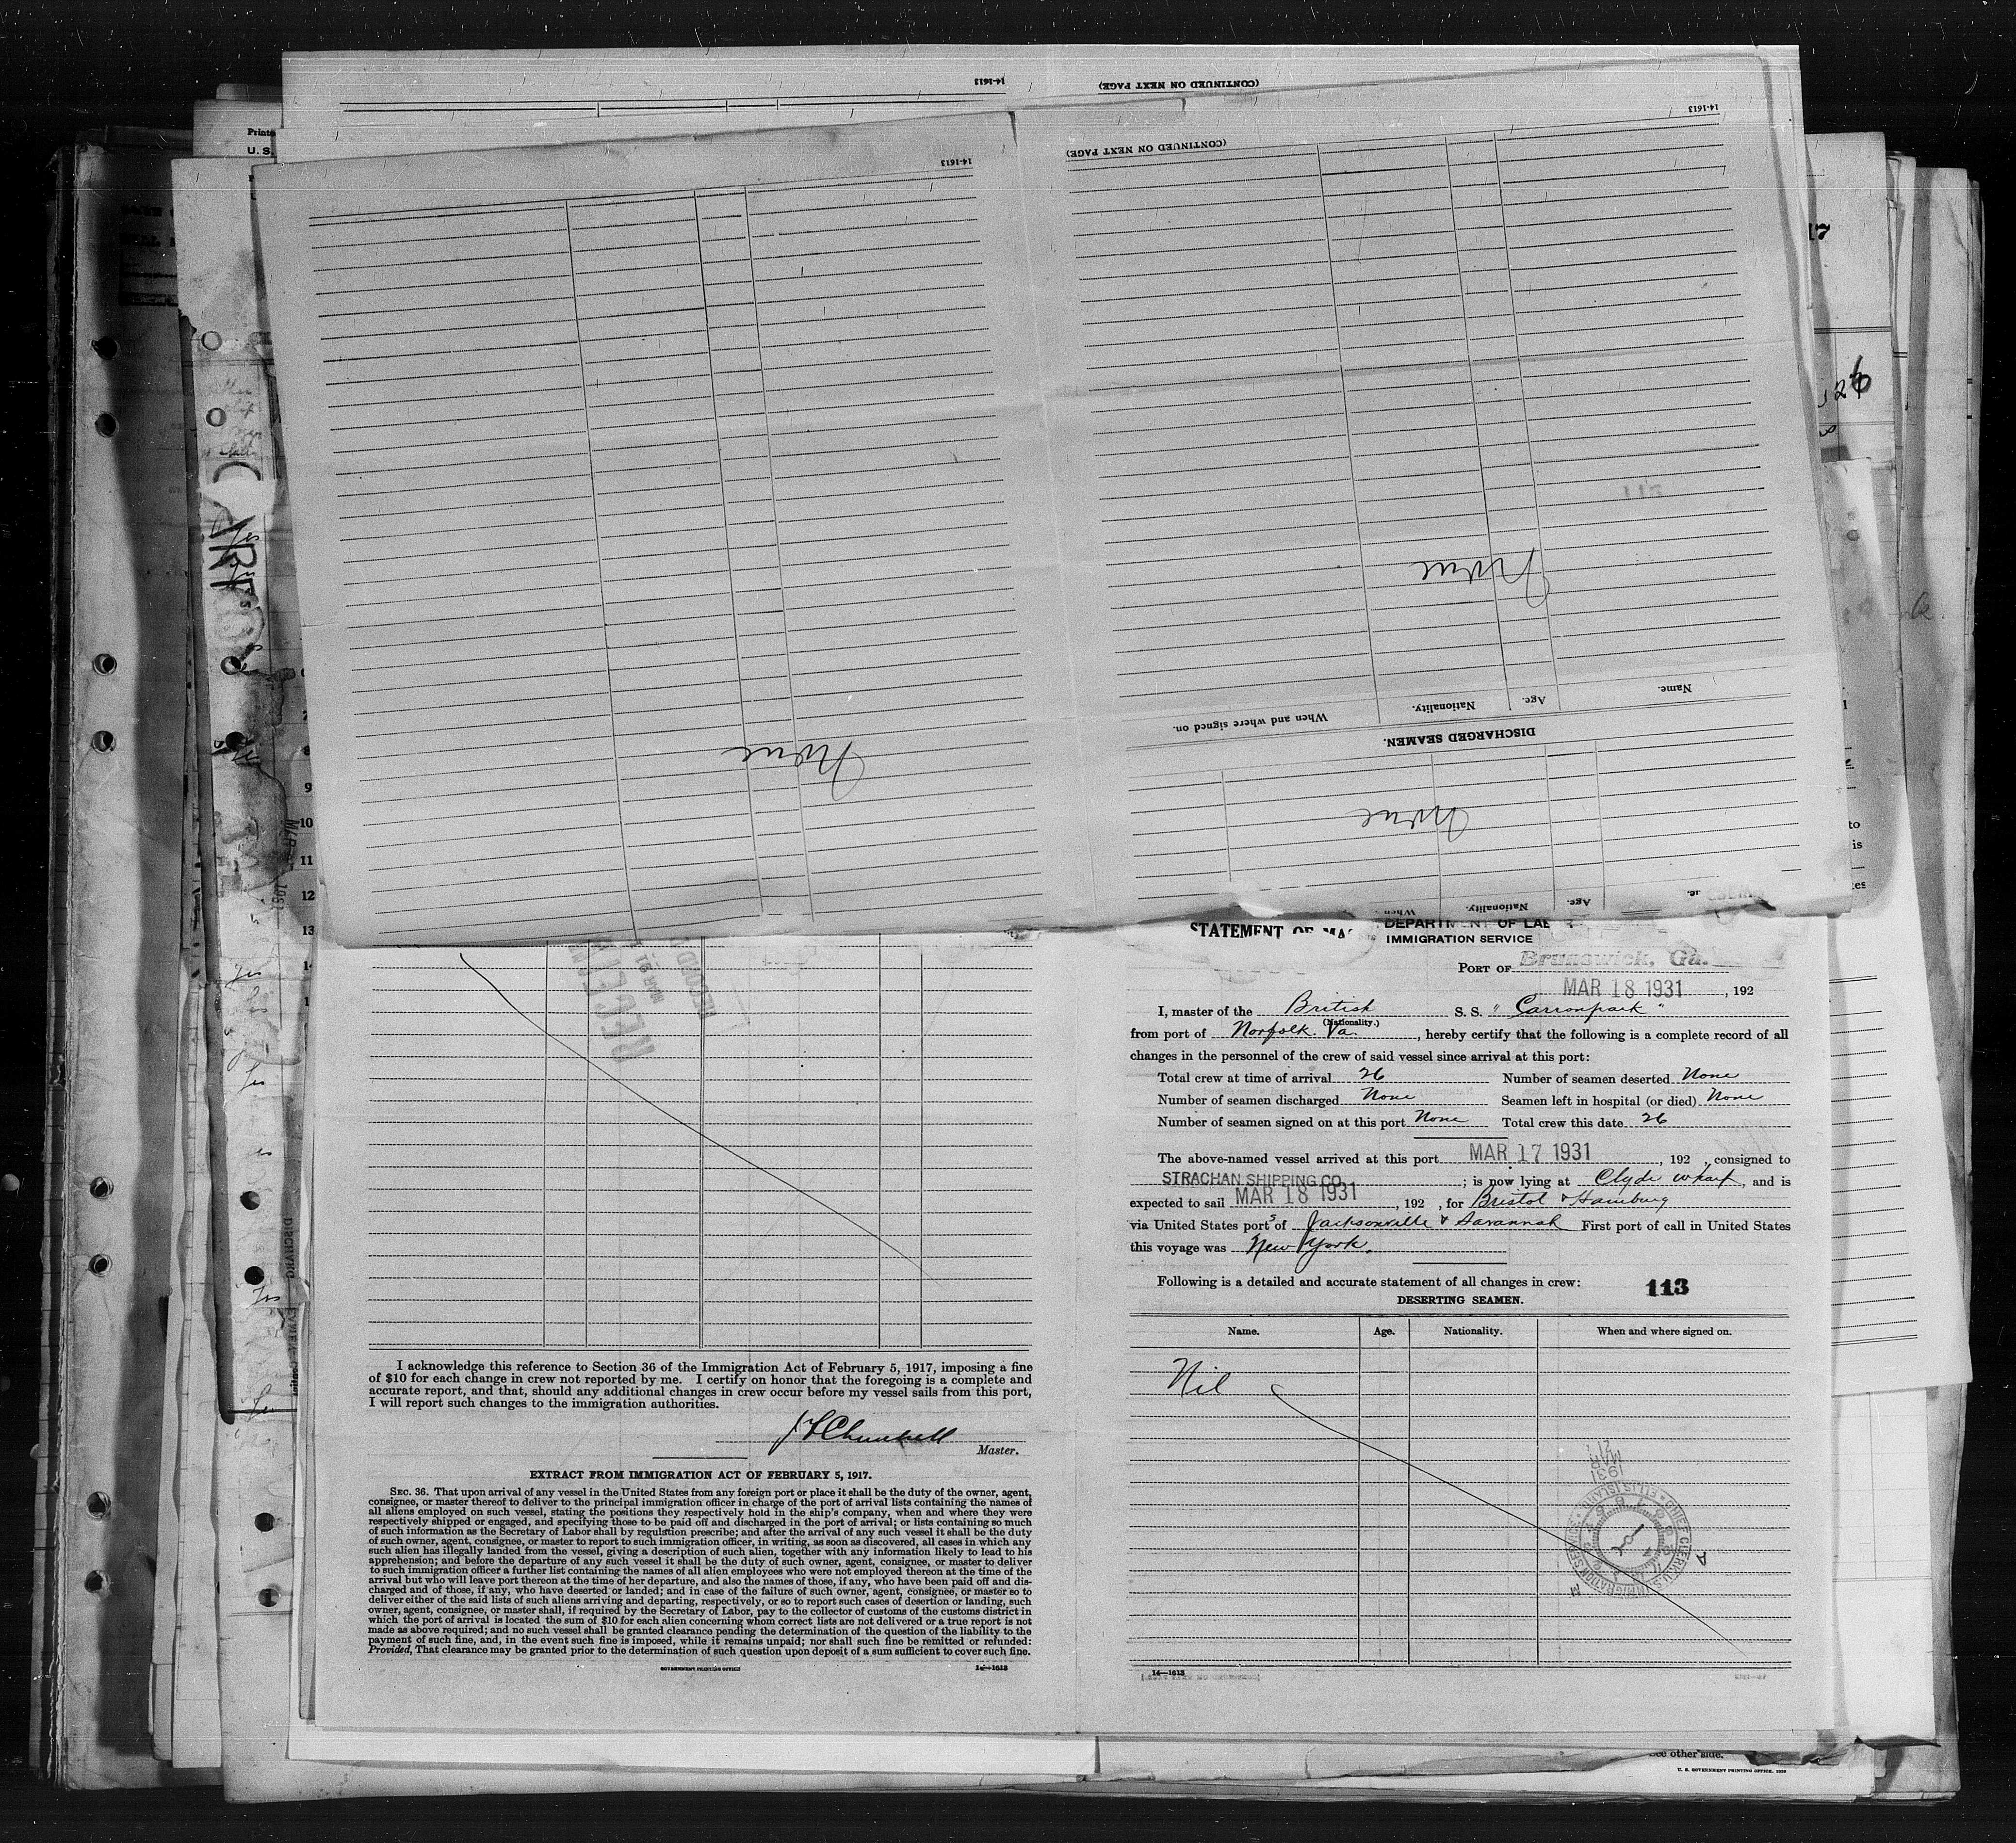 14-1613
(CONTINUED ON NEXT PAGE)
14-1613
(CONTINUED ON NEXT PAGE)
14-1613
Printe
U. S.
17
None
Name.
Age.
Nationality.
When and where signed on.
DISCHARGED SEAMEN.
None
None
Age.
Nationality.
When
9
10
11
12
13
STATEMENT OF MA
DEPARTMENT OF LAB
IMMIGRATION SERVICE
PORT OF Brunswick, Ga.
MAR 18 1931, 192
I, master of the British S. S. "Carronpark"
(Nationality.)
from port of Norfolk. Va., hereby certify that the following is a complete record of all
changes in the personnel of the crew of said vessel since arrival at this port:
Total crew at time of arrival 26 Number of seamen deserted None
Number of seamen discharged None Seamen left in hospital (or died) None
Number of seamen signed on at this port None Total crew this date 26
The above-named vessel arrived at this port MAR 17 1931, 192 , consigned to
STRACHAN SHIPPING CO. ; is now lying at Clyde Wharf, and is
expected to sail MAR 18 1931, 192 , for Bristol & Hamburg
via United States ports of Jacksonville & Savannah First port of call in United States
this voyage was New York.
Following is a detailed and accurate statement of all changes in crew:
113
DESERTING SEAMEN.
Name. Age. Nationality. When and where signed on.
Nil
14—1613
I acknowledge this reference to Section 36 of the Immigration Act of February 5, 1917, imposing a fine
of $10 for each change in crew not reported by me. I certify on honor that the foregoing is a complete and
accurate report, and that, should any additional changes in crew occur before my vessel sails from this port,
I will report such changes to the immigration authorities.
Master.
EXTRACT FROM IMMIGRATION ACT OF FEBRUARY 5, 1917.
SEC. 36. That upon arrival of any vessel in the United States from any foreign port or place it shall be the duty of the owner, agent,
consignee, or master thereof to deliver to the principal immigration officer in charge of the port of arrival lists containing the names of
all aliens employed on such vessel, stating the positions they respectively hold in the ship's company, when and where they were
respectively shipped or engaged, and specifying those to be paid off and discharged in the port of arrival; or lists containing so much
of such information as the Secretary of Labor shall by regulation prescribe; and after the arrival of any such vessel it shall be the duty
of such owner, agent, consignee, or master to report to such immigration officer, in writing, as soon as discovered, all cases in which any
such alien has illegally landed from the vessel, giving a description of such alien, together with any information likely to lead to his
apprehension; and before the departure of any such vessel it shall be the duty of such owner, agent, consignee, or master to deliver
to such immigration officer a further list containing the names of all alien employees who were not employed thereon at the time of the
arrival but who will leave port thereon at the time of her departure, and also the names of those, if any, who have been paid off and dis-
charged and of those, if any, who have deserted or landed; and in case of the failure of such owner, agent, consignee, or master so to
deliver either of the said lists of such aliens arriving and departing, respectively, or so to report such cases of desertion or landing, such
owner, agent, consignee, or master shall, if required by the Secretary of Labor, pay to the collector of customs of the customs district in
which the port of arrival is located the sum of $10 for each alien concerning whom correct lists are not delivered or a true report is not
made as above required; and no such vessel shall be granted clearance pending the determination of the question of the liability to the
payment of such fine, and, in the event such fine is imposed, while it remains unpaid; nor shall such fine be remitted or refunded:
Provided, That clearance may be granted prior to the determination of such question upon deposit of a sum sufficient to cover such fine.
GOVERNMENT PRINTING OFFICE 14—1613
See other side.
U. S. GOVERNMENT PRINTING OFFICE.